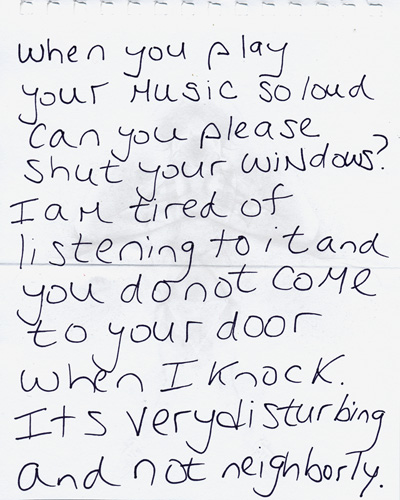 When you play
your Music so loud
Can you please
shut your windows?
I am tired of
listening to it and
you do not come
to your door
when I knock.
Its very disturbing
and not neighborly.